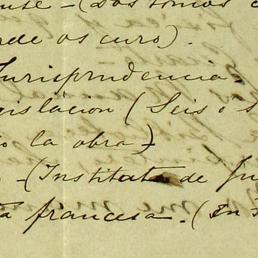 -(Dos tomos
de oscuro).
Jurisprudencia.
islación (Seis ó s
la obra)-
-(Instituta de Ju
francesa. (En